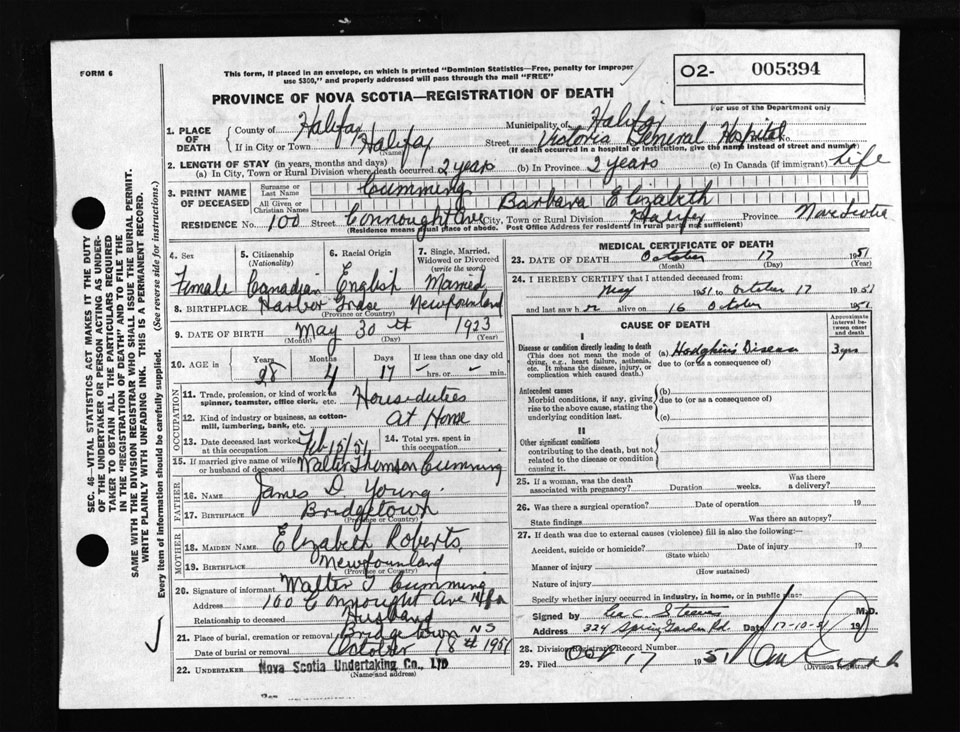 FORM 6
This form, if placed in an envelope, on which is printed "Dominion Statistics—Free, penalty for improper
use $300," and properly addressed will pass through the mail "FREE"
O2- 005394
For use of the Department only
PROVINCE OF NOVA SCOTIA—REGISTRATION OF DEATH
1. PLACE OF DEATH
County of Halifax Municipality of Halifax
If in City or Town Halifax Street Victoria General Hospital No.
(Name)
(If death occurred in a hospital or institution, give the name instead of street and number)
2. LENGTH OF STAY (in years, months and days)
(a) In City, Town or Rural Division where death occurred 2 years (b) In Province 2 years (c) In Canada (if immigrant) Life
3. PRINT NAME OF DECEASED
Surname or Last Name Cumming
All Given or Christian Names Barbara Elizabeth
RESIDENCE No. 100 Street Connought Ave City, Town or Rural Division Halifax Province Nova Scotia
(Residence means usual place of abode. Post Office Address for residents in rural parts not sufficient)
4. Sex Female
5. Citizenship (Nationality) Canadian
6. Racial Origin English
7. Single, Married, Widowed or Divorced (write the word) Married
8. BIRTHPLACE Harbor Grase Newfounland
(Province or Country)
9. DATE OF BIRTH May 30th 1923
(Month) (Day) (Year)
10. AGE in Years 28 Months 4 Days 17 If less than one day old - hrs. or - min.
OCCUPATION
11. Trade, profession, or kind of work as spinner, teamster, office clerk, etc. Houseduties
12. Kind of industry or business, as cotton-mill, lumbering, bank, etc. At Home
13. Date deceased last worked at this occupation Feb 15/51
14. Total yrs. spent in this occupation
15. If married give name of wife or husband of deceased Walter Thomson Cumming
FATHER
16. NAME James D. Young
17. BIRTHPLACE Bridgetown
(Province or Country)
MOTHER
18. MAIDEN NAME Elizabeth Roberts
19. BIRTHPLACE Newfounland
(Province or Country)
20. Signature of informant Walter T Cumming
Address 100 Connought Ave Hfx
Relationship to deceased Husband
21. Place of burial, cremation or removal Bridgetown NS
Date of burial or removal October 18th 1951
22. UNDERTAKER Nova Scotia Undertaking Co., LTD
(Name and address)
MEDICAL CERTIFICATE OF DEATH
23. DATE OF DEATH October 17 1951
(Month) (Day) (Year)
24. I HEREBY CERTIFY that I attended deceased from:
May 1951 to October 17 1951
and last saw her alive on 16 October 1951
CAUSE OF DEATH
Approximate interval between onset and death
I
Disease or condition directly leading to death
(This does not mean the mode of dying, e.g., heart failure, asthenia, etc. It means the disease, injury, or complication which caused death.)
(a) Hodgkin's Disease 3 yrs
due to (or as a consequence of)
Antecedent causes
Morbid conditions, if any, giving rise to the above cause, stating the underlying condition last.
(b)
due to (or as a consequence of)
(c)
II
Other significant conditions
contributing to the death, but not related to the disease or condition causing it.
25. If a woman, was the death associated with pregnancy? Duration weeks. Was there a delivery?
26. Was there a surgical operation? Date of operation 19
State findings Was there an autopsy?
27. If death was due to external causes (violence) fill in also the following:—
Accident, suicide or homicide? Date of injury 19
(State which)
Manner of injury
(How sustained)
Nature of injury
Specify whether injury occurred in industry, in home, or in public place
Signed by C. Steeves M.D.
Address 324 Spring Garden Rd. Date 17-10-51 19
28. Division Registrar's Record Number
29. Filed Oct 17 1951
(Division Registrar)
SEC. 46—VITAL STATISTICS ACT MAKES IT THE DUTY
OF THE UNDERTAKER OR PERSON ACTING AS UNDERTAKER TO OBTAIN ALL THE PARTICULARS REQUIRED
IN THE "REGISTRATION OF DEATH" AND TO FILE THE
SAME WITH THE DIVISION REGISTRAR WHO SHALL ISSUE THE BURIAL PERMIT.
WRITE PLAINLY WITH UNFADING INK. THIS IS A PERMANENT RECORD.
Every item of information should be carefully supplied. (See reverse side for instructions.)